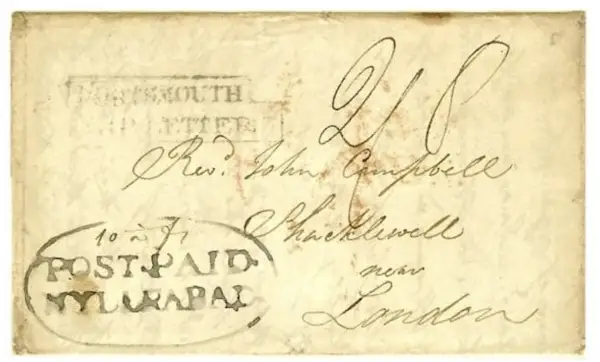 PORTSMOUTH
SHIP LETTER
2/8
Revd. John Campbell
Shacklewell
near
London
POST PAID